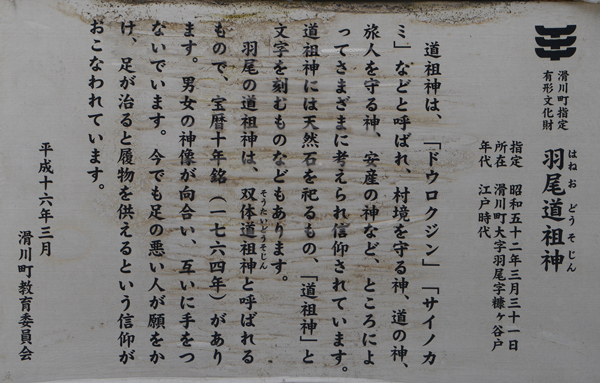 滑川町指定
有形文化財
羽尾道祖神
はねおどうそじん
指定 昭和五十二年三月三十一日
所在 滑川町大字羽尾字糠ヶ谷戸
年代 江戸時代
道祖神は、「ドウロクジン」「サイノカ
ミ」などと呼ばれ、村境を守る神、道の神、
旅人を守る神、安産の神など、ところによ
ってさまざまに考えられ信仰されています。
道祖神には天然石を祀るもの、「道祖神」と
文字を刻むものなどもあります。
羽尾の道祖神は、双体道祖神と呼ばれる
そうたいどうそじん
もので、宝暦十年銘(一七六四年)があり
ます。男女の神像が向合い、互いに手をつ
ないでいます。今でも足の悪い人が願をか
け、足が治ると履物を供えるという信仰が
おこなわれています。
平成十六年三月
滑川町教育委員会